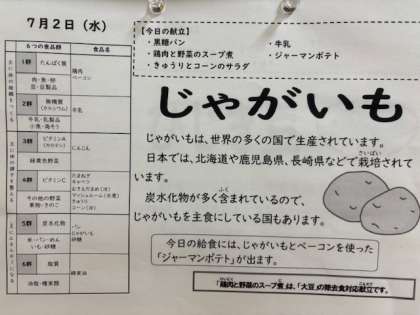 7月2日（水）
【今日の献立】
・黒糖パン　・牛乳
・鶏肉と野菜のスープ煮　・ジャーマンポテト
・きゅうりとコーンのサラダ
6つの食品群　食品名
1群　たんぱく質　鶏肉
肉・魚・卵　ベーコン
豆・豆製品
2群　無機質
（カルシウム）　牛乳
牛乳・乳製品
小魚・海そう
3群　ビタミンA
（カロテン）　にんじん
緑黄色野菜
4群　ビタミンC　たまねぎ
キャベツ
その他の野菜
果物・きのこ
きゅうり
コーン（冷）
5群　炭水化物　パン
じゃがいも
米・パン・めん
いも・砂糖　砂糖
6群　脂質
油脂・種実類
じゃがいも
じゃがいもは、世界の多くの国で生産されています。
さいばい
日本では、北海道や鹿児島県、長崎県などで栽培されて
います。
ふく
炭水化物が多く含まれているので、
じゃがいもを主食にしている国もあります。
今日の給食には、じゃがいもとベーコンを使った
「ジャーマンポテト」が出ます。
「鶏肉と野菜のスープ煮」は、「大豆」の除去食対応献立です。